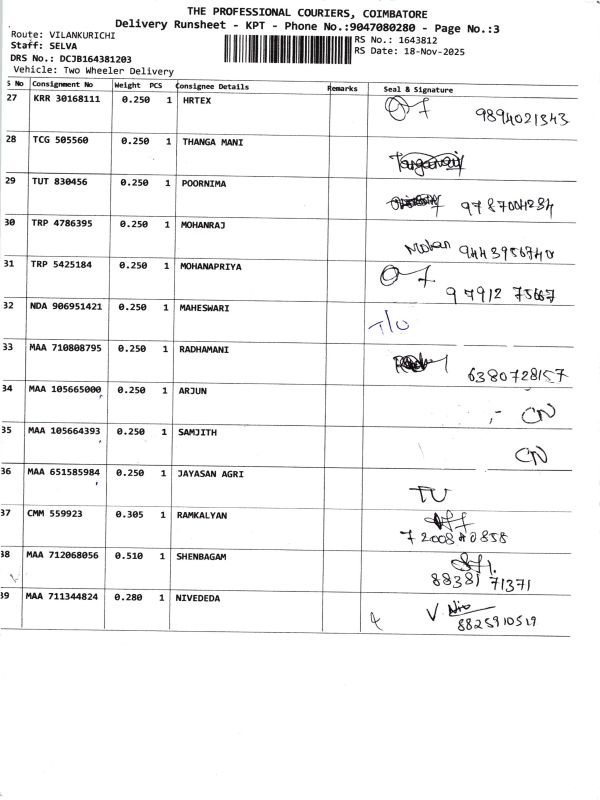 THE PROFESSIONAL COURIERS, COIMBATORE
Delivery Runsheet - KPT - Phone No.:9047080280 - Page No.:3
Route: VILANKURICHI
RS No.: 1643812
Staff: SELVA
RS Date: 18-Nov-2025
DRS No.: DCJB164381203
Vehicle: Two Wheeler Delivery
S No Consignment No Weight PCS Consignee Details Remarks Seal & Signature
27 KRR 30168111 0.250 1 HRTEX
9894021343
28 TCG 505560 0.250 1 THANGA MANI
29 TUT 830456 0.250 1 POORNIMA
9787004234
30 TRP 4786395 0.250 1 MOHANRAJ
Mohan 9443956740
31 TRP 5425184 0.250 1 MOHANAPRIYA
97912 75667
32 NDA 906951421 0.250 1 MAHESWARI
T/U
33 MAA 710808795 0.250 1 RADHAMANI
6380728157
34 MAA 105665000 0.250 1 ARJUN
CN
35 MAA 105664393 0.250 1 SAMJITH
CN
36 MAA 651585984 0.250 1 JAYASAN AGRI
TU
37 CMM 559923 0.305 1 RAMKALYAN
7200840858
38 MAA 712068056 0.510 1 SHENBAGAM
88381 71371
39 MAA 711344824 0.280 1 NIVEDEDA
8825910519